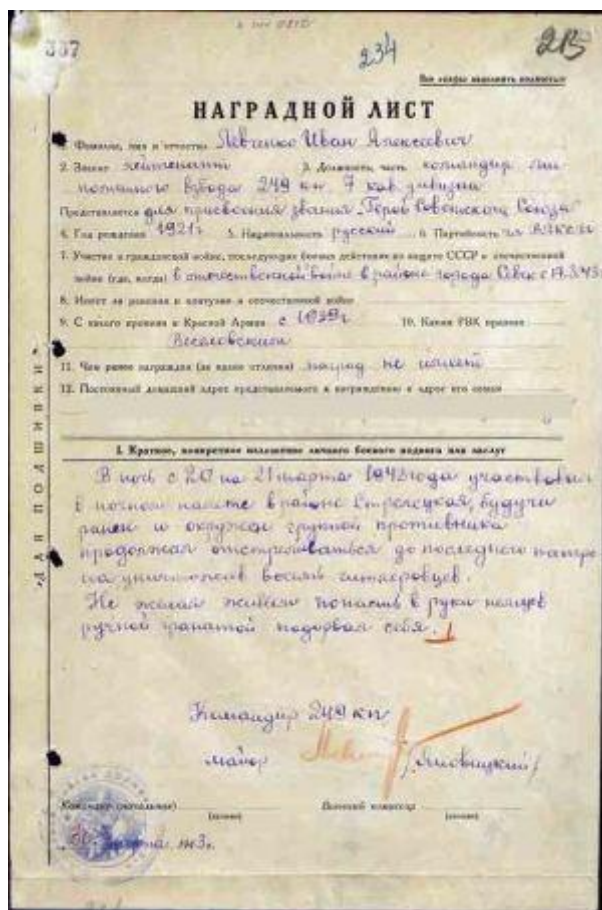 337
234
215
Все графы заполнять полностью
НАГРАДНОЙ ЛИСТ
1. Фамилия, имя и отчество Левченко Иван Алексеевич
2. Звание лейтенант 3. Должность, часть командир
взвода 249 кп. 7 кав. дивизии
Представляется для присвоения звания „Герой Советского Союза
4. Год рождения 1921г 5. Национальность русский 6. Партийность чл ВЛКСМ
7. Участие в гражданской войне, последующих боевых действиях по защите СССР и отечественной
войне (где, когда) в отечественной войне в районе города Севск с 17.3.43
8. Имеет ли ранения и контузии в отечественной войне
9. С какого времени в Красной Армии с 1939г 10. Каким РВК призван
Веселовским
11. Чем ранее награжден (за какие отличия) наград не имеет
12. Постоянный домашний адрес представляемого к награждению и адрес его семьи
„ДЛЯ ПОДШИВКИ"
I. Краткое, конкретное изложение личного боевого подвига или заслуг
В ночь с 20 на 21 марта 1943 года участвовал
в ночном налете в районе Стрелецкая, будучи
ранен и окружен группой противника
продолжал отстреливаться до последнего патро
на уничтожив восемь гитлеровцев.
Не желая живым попасть в руки немцев
ручной гранатой подорвал себя.
Командир 249 кп
майор
Командир (начальник)
Военный комиссар
(подпись)
(подпись)
марта 1943г.